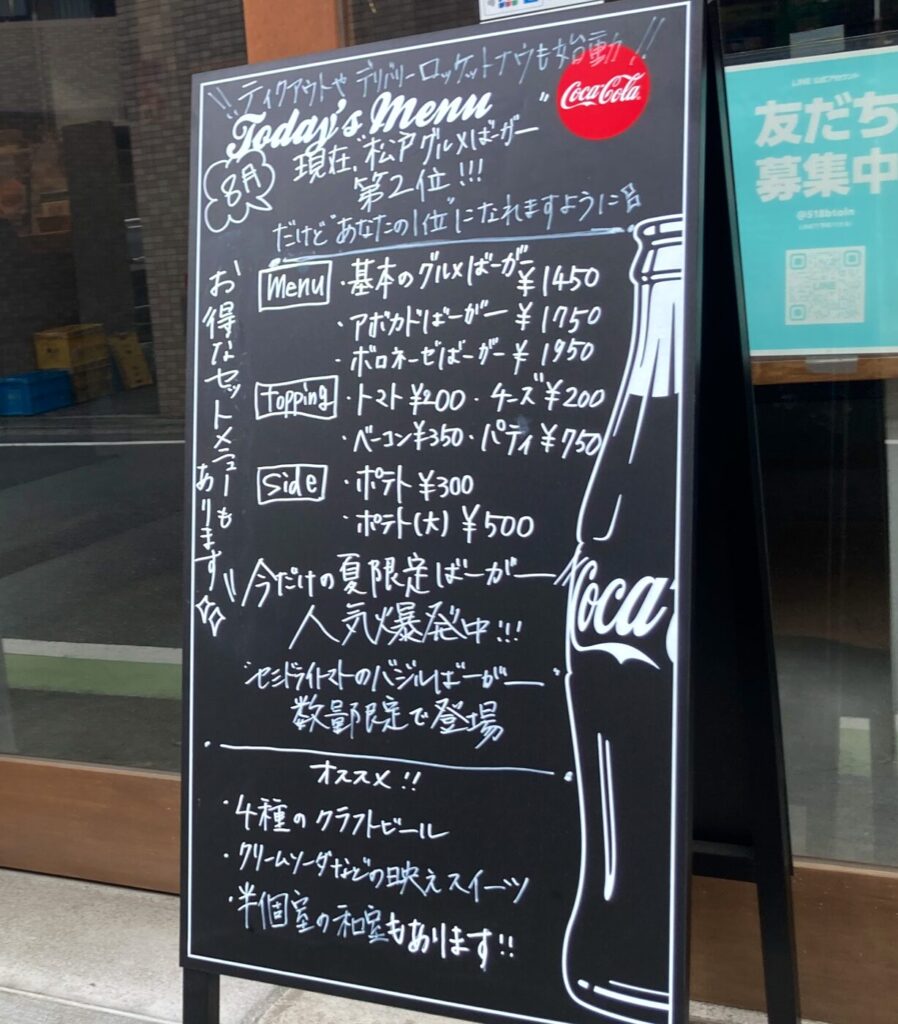 \\ テイクアウトや デリバリーロケットナウも始動 //
Today's Menu
Coca-Cola
8月
現在、"松戸グルメばーガー"
第2位!!!
だけど"あなたの1位"になれますように
お得なセットメニューもあります
Menu
・基本のグルメばーガー ¥1450
・アボカドばーガー ¥1750
・ボロネーゼばーガー ¥1950
topping
・トマト ¥200 ・チーズ ¥200
・ベーコン ¥350 ・パティ ¥750
Side
・ポテト ¥300
・ポテト(大) ¥500
\\ 今だけの夏限定ばーガー //
人気爆発中!!!
"セミドライトマトのバジルばーガー"
数量限定で登場
Coca
オススメ!!
・4種のクラフトビール
・クリームソーダなどの映えスイーツ
・半個室の和室もあります!!
LINE 公式アカウント
友だち
募集中
@518btoln
LINE